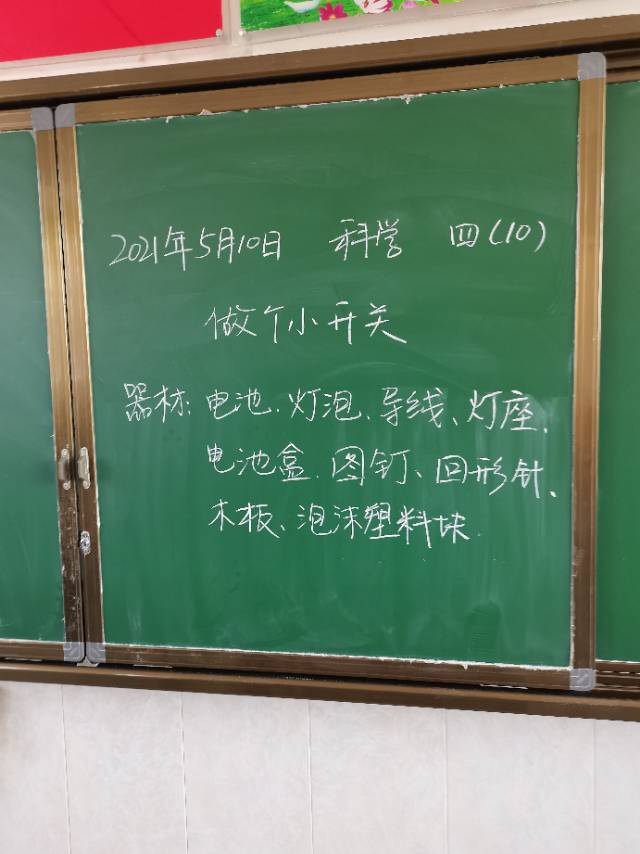 2021年5月10日 科学 四(10)
做个小开关
器材:电池、灯泡、导线、灯座、
电池盒、图钉、回形针、
木板、泡沫塑料块.